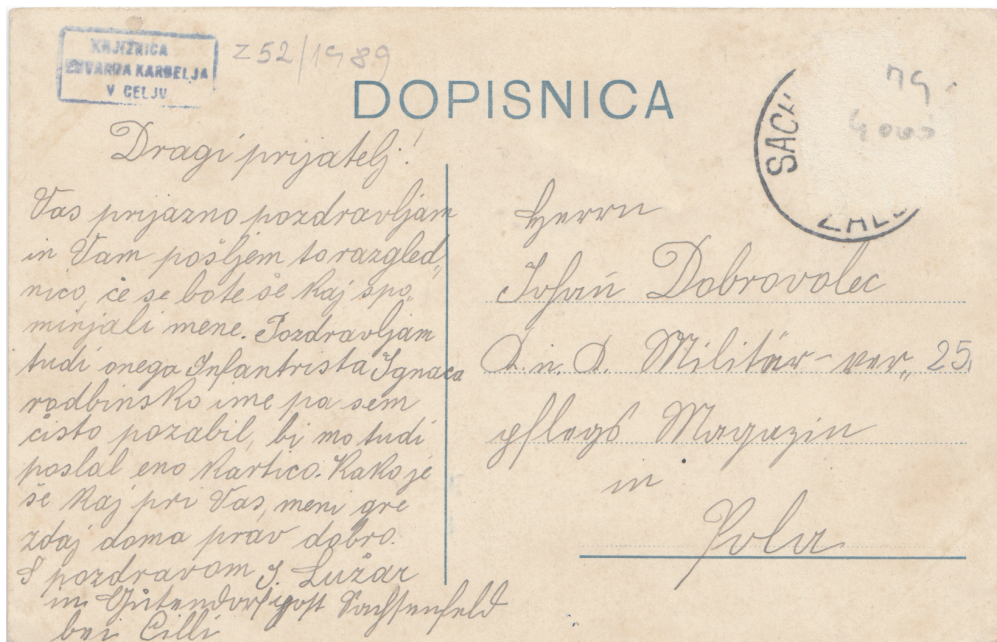 KNJIŽNICA
EDVARDA KARDELJA
V CELJU
Z 52/1989
DOPISNICA
SACH
ŽALE
79
4000
Dragi prijatelj!
Vas prijazno pozdravljam
in Vam pošljem to razgled„
nico, če se bote še kaj spo„
minjali mene. Pozdravljam
tudi onega Infantrista Ignaca
rodbinsko ime pa sem
čisto pozabil, bi mo tudi
poslal eno kartico. Kako je
še kaj pri Vas, meni gre
zdaj doma prav dobro.
S pozdravom J. Lužar
in Gutendorf post Sachsenfeld
bei Cilli
Herrn
Johan Dobrovolec
Militär-ver„ 25.
pflegs Magazin
in
Pola